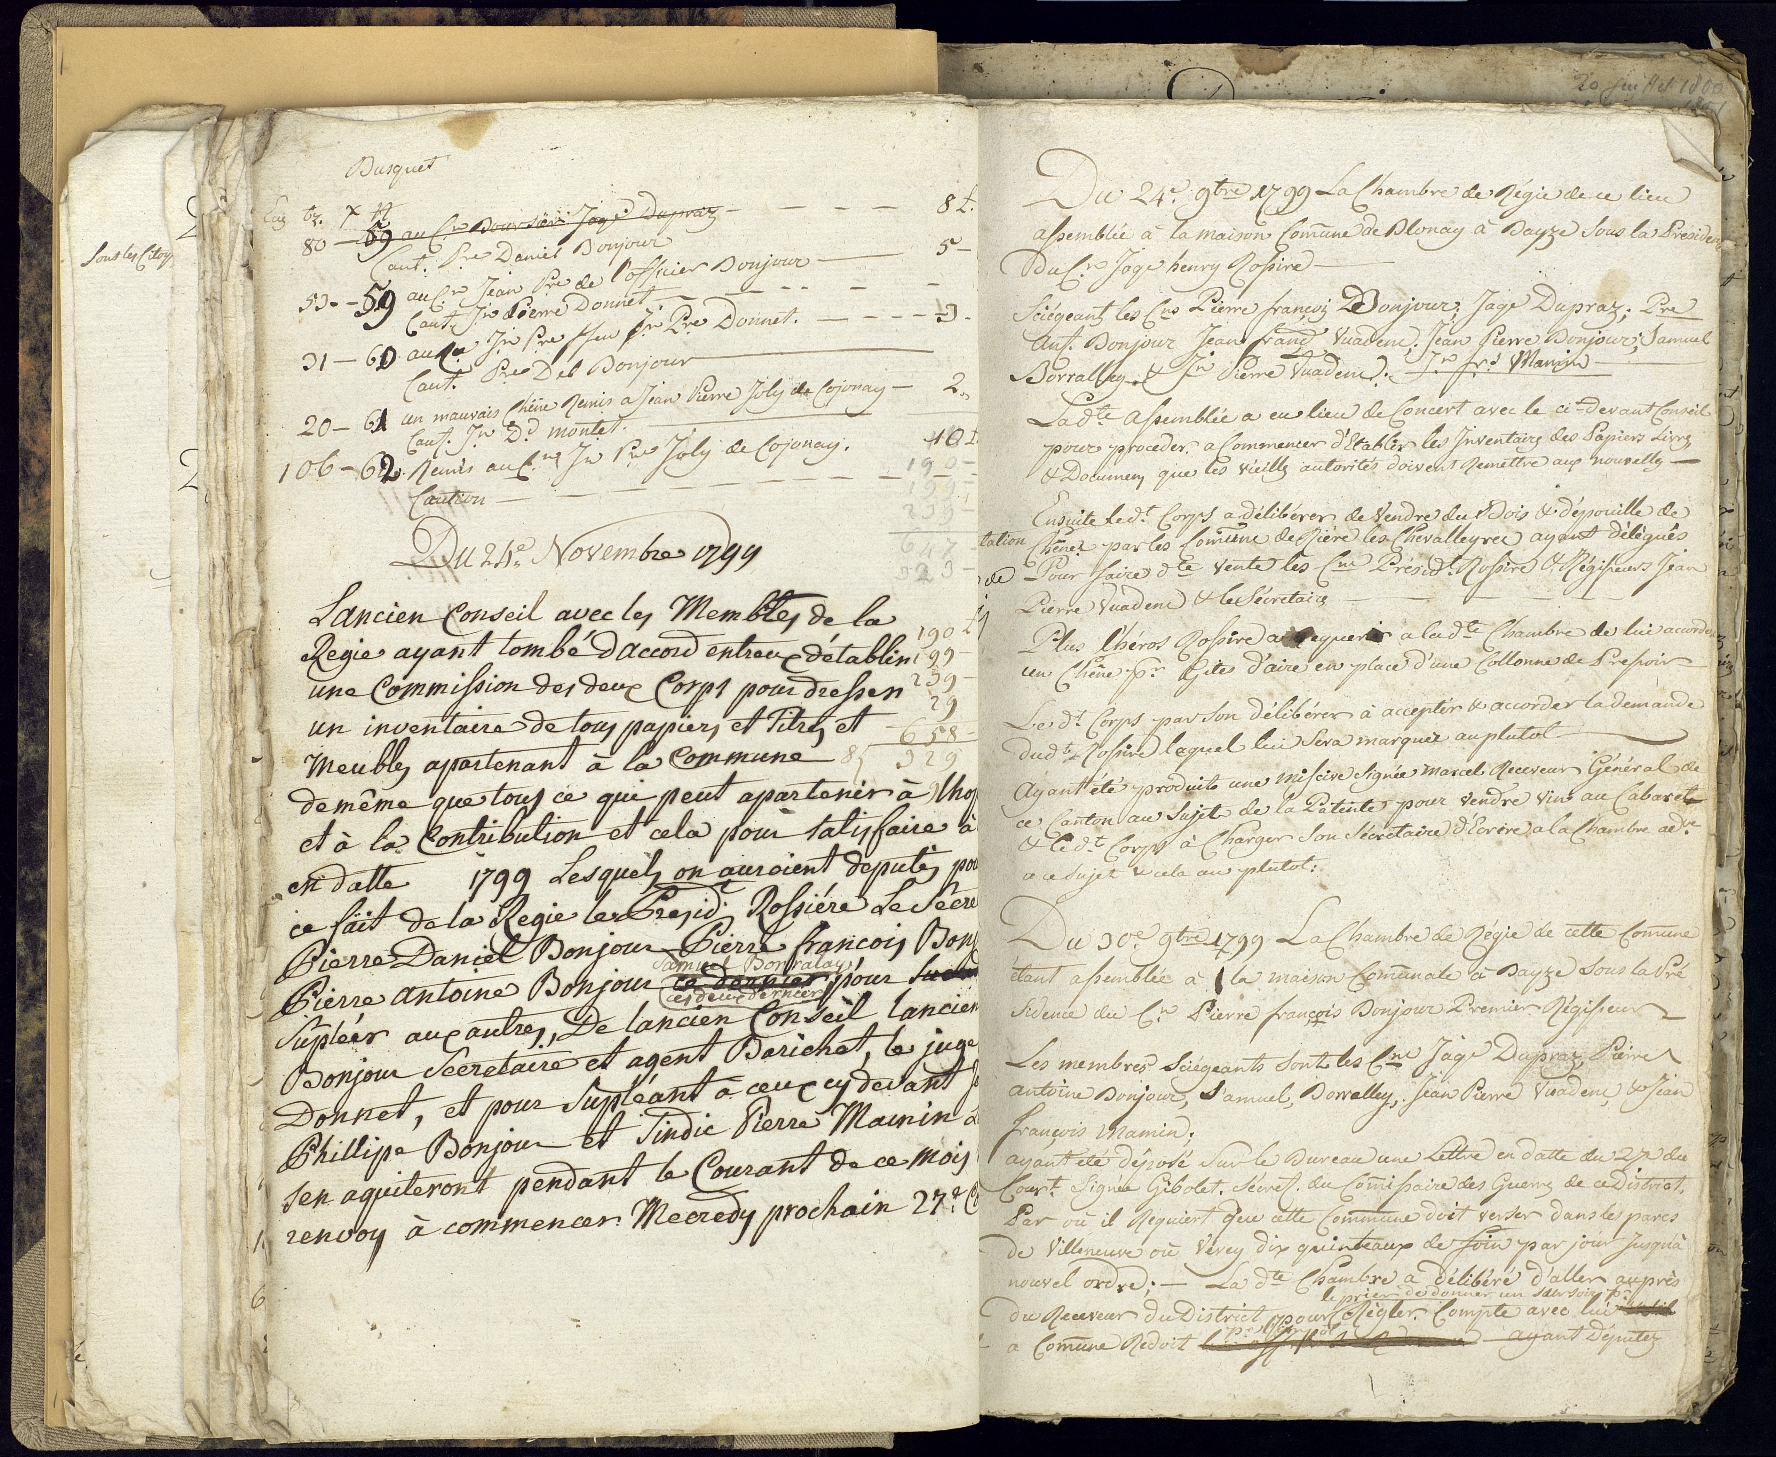 Busquet
80 — 59 au Cn Boursier Jaqe Dupraz — — — — 8 L.
Caut. Pre Daniel Bonjour
53 — 59 au Cn Jean Pre de l'officier Bonjour — 5 —
Caut. Jn Pierre Donnet
31 — 60 au Jn Pre feu Jn Pre Donnet. — — — 3.
Caut. Pre Del Bonjour
20 — 61 un mauvais Chêne Remis a Jean Pierre Joly de Cojonay — 2
Caut. Jn Dd montet.
106 — 62 Remis au Cn Jn Pre Joly de Cojonay. 10
Caution — — — —
Du 24e Novembre 1799
Lancien Conseil avec les Membres de la
Regie ayant tombé d'accord entreux d'établir
une Commission des deux Corps pour dresser
un inventaire de tous papiers et Titres et
Meubles apartenant à la Commune
de même que tous ce qui peut apartenir à lhop
et à la Contribution et cela pour satisfaire à
en datte 1799 Lesquels on auroient deputés pou
ce fait de la Regie le Presidt Rossiére Le Sécre
Pierre Daniel Bonjour Pierre francois Bonj
Samuel Borralay
Pierre antoine Bonjour ce dernier pour
ces deux dernier
Supléer aux autres, De lancien Conseil lancien
Bonjour Secretaire et agent Barichet, le juge
Donnet, et pour Supléant à ceux cy devant
Phillipe Bonjour et Sindic Pierre Mamin
sen aquiteront pendant le Courant de ce mois
renvoy à commencer Mecredy prochain 27e
190 L
199 —
239 —
29
658 —
329
Sous les Citoy
Du 24e 9bre 1799 La Chambre de Régie de ce lieu
assemblée à la maison Comune de Blonay à Bayze sous la Présiden
du Cn Jaqe henry Rossire
Sciégeants les Cns Pierre françois Bonjour; Jaqe Dupraz; Pre
Ant. Bonjour Jean franç Vuadens; Jean Pierre Bonjour; Samuel
Borralley & Jn Pierre Vuadens. Jn frs Mamin
La dte Assemblée a eu lieu de Concert avec le ci-devant Conseil
pour procéder a Commencer d'Etablir les Inventaires des Papiers Livres
& Documens que les vieilles autorités doivent Remettre aux nouvelles —
Ensuite le dt Corps a délibérer de Vendre du Bois & dépouille de
Chênes par les Comune de Rière les Chevalleyres ayant délégués
Pour faire dte Vente les Cns Présidt Rossire & Régisseurs Jean
Pierre Vuadens & le Sécretaire
Plus l'héros Rossire a Requeris a la dte Chambre de lui accorder
un Chêne pr Gites d'aire en place d'une Collonne de Pressoir
Le dt Corps par son délibérer à accepter & accorder la demande
dudt Rossire laquel lui sera marquer auplutot.
Ayant été produite une missive signée marcel Receveur Général de
ce Canton au Sujet de la Patente pour Vendre Vin au Cabaret
& le dt Corps à Charger son Sécretaire d'Ecrire a la Chambre adve
a ce Sujet & cela au plutot:
Du 30e 9bre 1799 La Chambre de Régie de cette Comune
étant assemblée à la maison Comunale à Bayze sous la Pré
sidence du Cn Pierre françois Bonjour Premier Régisseur
Les membres Sciégeants sont les Cns Jaqe Dupraz, Pierre
Antoine Bonjour, Samuel Borralley, Jean Pierre Vuadens, & Jean
françois Mamin;
ayant été déposé sur le Bureau une Lettre en datte du 27e du
Court Signée Gibolet. Sécret. du Comissaire des Guerres de ce District.
Par ou il Requiert que cette Commune doit verser dans les parcs
de Villeneuve ou Vevey dix quinteaux de foin par jour Jusqu'à
nouvel ordre; — La dte Chambre a délibéré d'aller auprès
le prier de donner un sursoir pr
du Receveur du District pour Règler Compte avec lui
a Comune Redoit ayant Députez